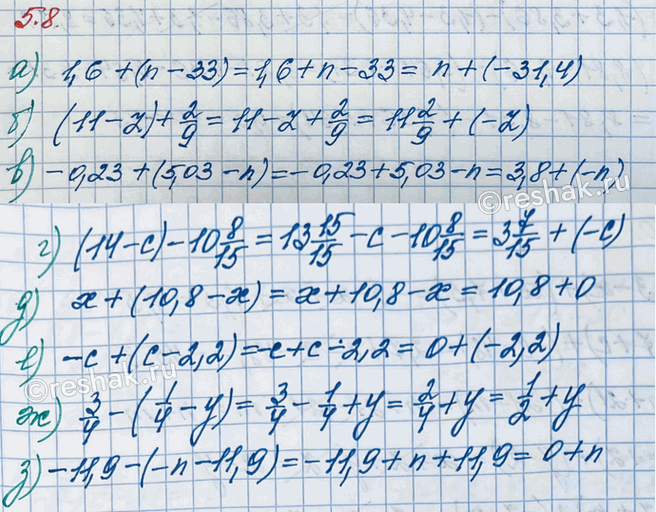 5.8.
а) 1,6 + (n − 33) = 1,6 + n − 33 = n + (−31,4)
б) (11 − z) + 2/9 = 11 − z + 2/9 = 11 2/9 + (−z)
в) −0,23 + (5,03 − n) = −0,23 + 5,03 − n = 3,8 + (−n)
©reshak.ru
г) (14 − c) − 10 8/15 = 13 15/15 − c − 10 8/15 = 3 7/15 + (−c)
д) x + (10,8 − x) = x + 10,8 − x = 10,8 + 0
е) −c + (c − 2,2) = −c + c − 2,2 = 0 + (−2,2)
©reshak.ru
ж) 3/4 − (1/4 − y) = 3/4 − 1/4 + y = 2/4 + y = 1/2 + y
з) −11,9 − (−n − 11,9) = −11,9 + n + 11,9 = 0 + n